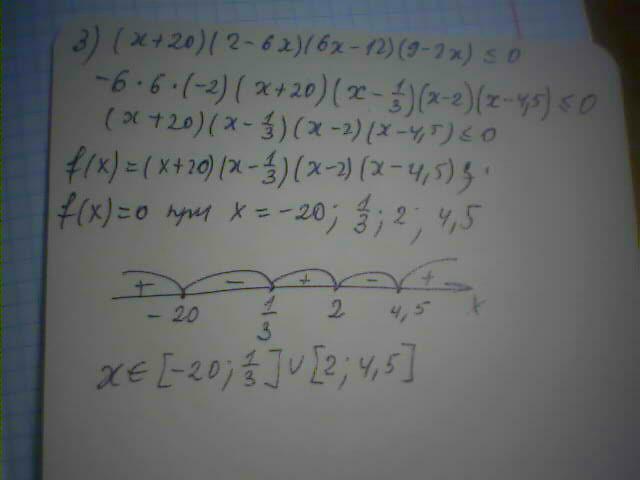 3) (x+20)(2-6x)(6x-12)(9-2x) ≤ 0
-6·6·(-2)(x+20)(x-1/3)(x-2)(x-4,5) ≤ 0
(x+20)(x-1/3)(x-2)(x-4,5) ≤ 0
f(x)=(x+20)(x-1/3)(x-2)(x-4,5)
f(x)=0 при x=-20; 1/3; 2; 4,5
+ - + - +
-20 1/3 2 4,5 x
x∈[-20; 1/3]∪[2; 4,5]